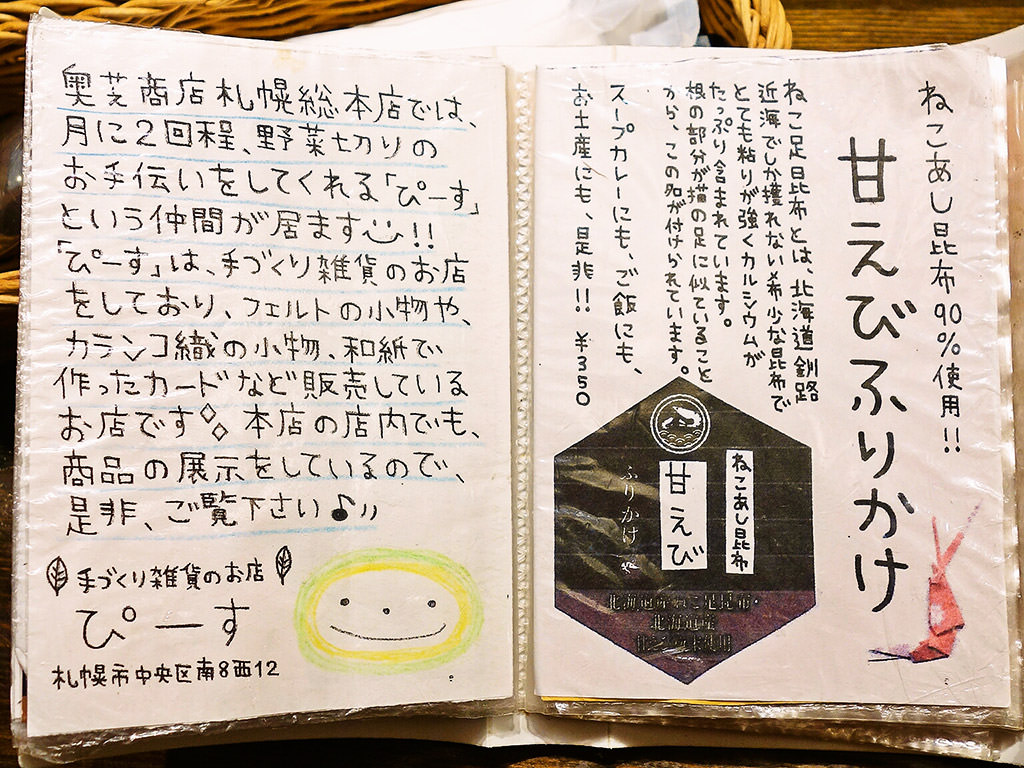 奥芝商店札幌総本店では、
月に2回程、野菜切りの
お手伝いをしてくれる「ぴーす」
という仲間が居ます!!
「ぴーす」は、手づくり雑貨のお店
をしており、フェルトの小物や、
カランコ織の小物、和紙で
作ったカードなど販売している
お店です 本店の店内でも、
商品の展示をしているので、
是非、ご覧下さい♪
手づくり雑貨のお店
ぴーす
札幌市中央区南8西12
ねこあし昆布90%使用!!
甘えびふりかけ
ねこ足昆布とは、北海道釧路
近海でしか獲れない希少な昆布で
とても粘りが強くカルシウムが
たっぷり含まれています。
根の部分が猫の足に似ていること
から、この名が付けられています。
スープカレーにも、ご飯にも、
お土産にも、是非!! ¥350
ねこあし昆布
甘えび
ふりかけ
北海道産ねこ足昆布・
北海道産